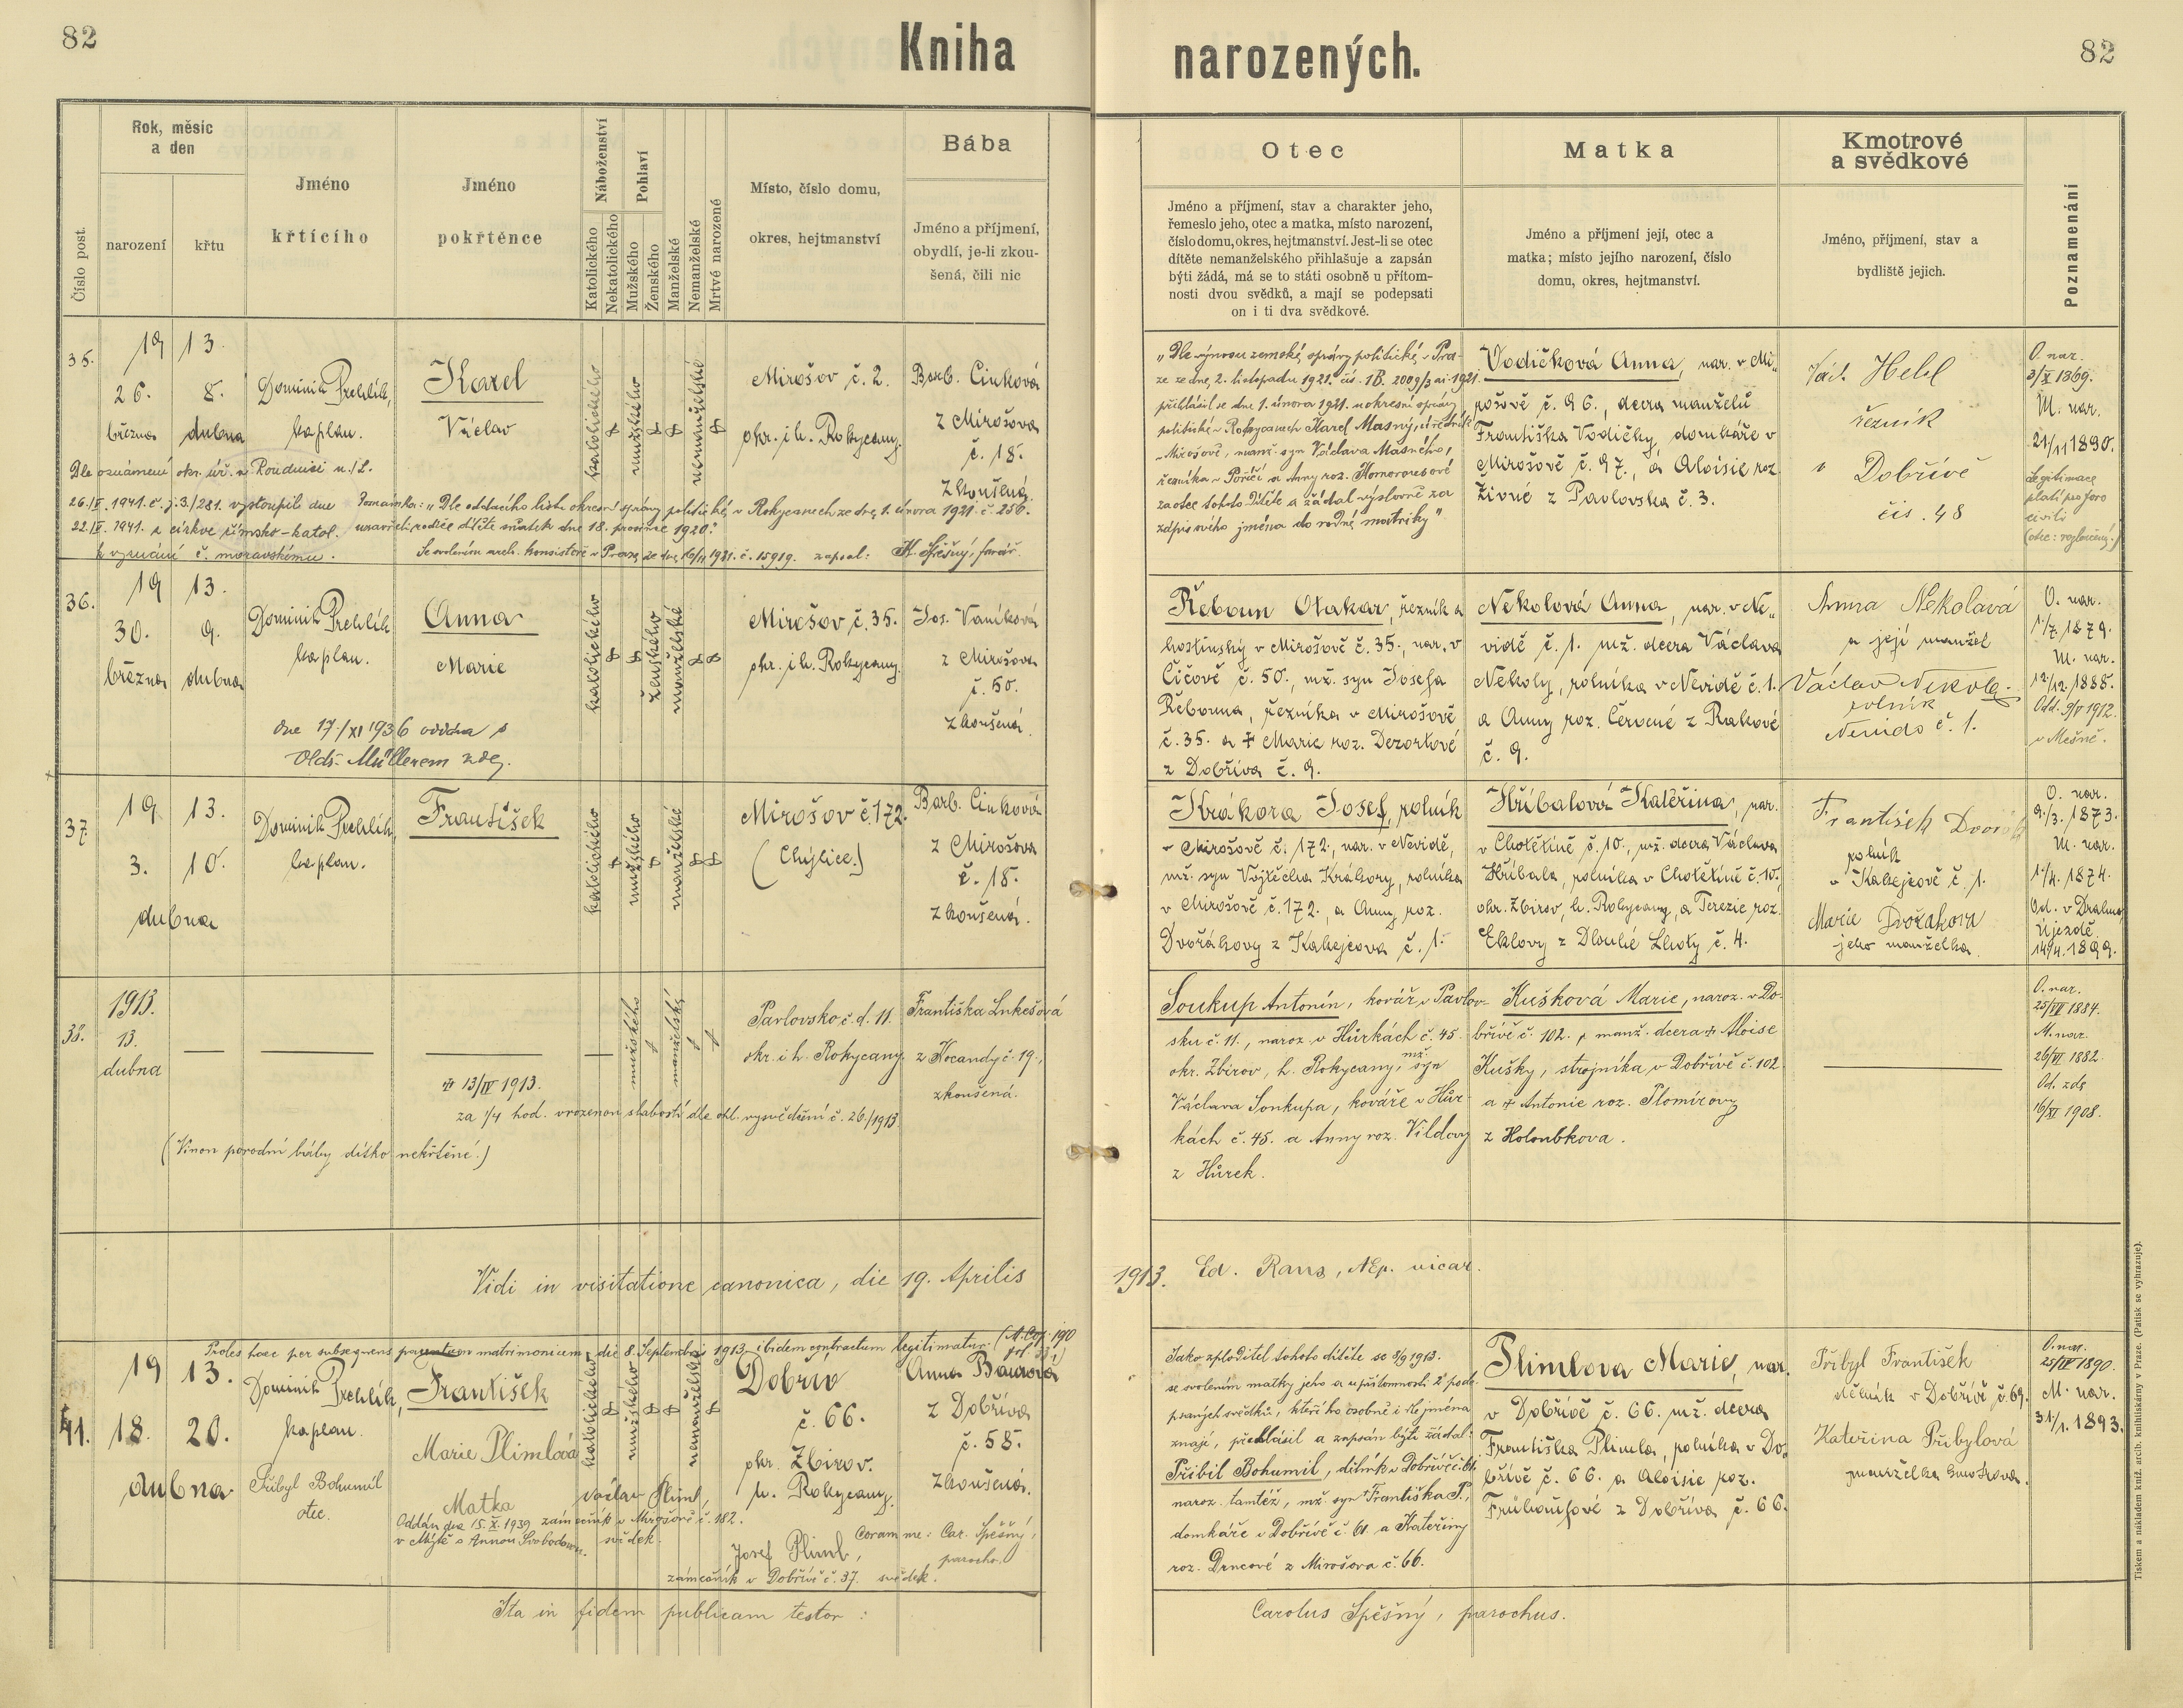 82
Kniha
narozených.
82
Číslo post.
Rok, měsíc
a den
narození
křtu
Jméno
křtícího
Jméno
pokřtěnce
Náboženství
Katolického
Nekatolického
Pohlaví
Mužského
Ženského
Manželské
Nemanželské
Mrtvé narozené
Místo, číslo domu,
okres, hejtmanství
Bába
Jméno a příjmení,
obydlí, je-li zkou-
šená, čili nic
Otec
Jméno a příjmení, stav a charakter jeho,
řemeslo jeho, otec a matka, místo narození,
číslo domu, okres, hejtmanství. Jest-li se otec
dítěte nemanželského přihlašuje a zapsán
býti žádá, má se to státi osobně u přítom-
nosti dvou svědků, a mají se podepsati
on i ti dva svědkové.
Matka
Jméno a příjmení její, otec a
matka; místo jejího narození, číslo
domu, okres, hejtmanství.
Kmotrové
a svědkové
Jméno, příjmení, stav a
bydliště jejich.
Poznamenání
35.
19 13.
26. 8.
března dubna
Dominik Prchlík,
kaplan.
Karel
Václav
katolického
mužského
nemanželské
Mirošov č. 2.
okr. i h. Rokycany.
Barb. Cinková
z Mirošova
č. 18.
zkoušená.
Dle oznámení okr. úř. v Roudnici n./L.
26./IX. 1941. č. j. 3/281. vystoupil dne
22./IX. 1941. z církve římsko-katol.
k vyznání č. moravskému.
Poznámka: „Dle oddacího listu okresní správy politické v Rokycanech ze dne 1. února 1921. č. 256.
uzavřeli rodiče dítěte sňatek dne 18. prosince 1920."
Se svolením arcb. konsistoře v Praze ze dne 16/II 1921. č. 15919. zapsal: K. Spěšný, farář.
„Dle výnosu zemské správy politické v Pra-
ze ze dne 2. listopadu 1921. čís. 1B. 2009/3 ai 1921.
přihlásil se dne 1. února 1921. u okresní správy
politické v Rokycanech Karel Masný,
v Mirošově, manž. syn Václava Masného,
řezníka v Poříčí a Anny roz.
za otce tohoto dítěte a žádal výslovně za
zápis svého jména do rodné matriky".
Vodičková Anna, nar. v Mi-
rošově č. 96., dcera manželů
Františka Vodičky, domkáře v
Mirošově č. 97., a Aloisie roz.
Živné z Pavlovska č. 3.
Václ. Hehl
řezník
v Dobřívě
čís. 48
O. nar.
3/X 1869.
M. nar.
21/11 1890.
Legitimace
platí pro foro
civili
(otec: rozloučený.)
36.
19 13.
30. 9.
března dubna
Dominik Prchlík
kaplan.
Anna
Marie
katolického
ženského
manželské
Mirošov č. 35.
okr. i h. Rokycany.
Jos. Vaníková
z Mirošova
č. 50.
zkoušená.
dne 17./XI 1936 oddána s
Old. Müllerem zde.
Řeboun Otakar, řezník a
hostinský v Mirošově č. 35., nar. v
Čičově č. 50., mž. syn Josefa
Řebouna, řezníka v Mirošově
č. 35. a + Marie roz. Dezortové
z Dobříva č. 9.
Nekolová Anna, nar. v Ne-
vidě č. 1. mž. dcera Václava
Nekoly, rolníka v Nevidě č. 1.
a Anny roz. Červené z Rakové
č. 9.
Anna Nekolavá
a její manžel
Václav Nekola
rolník
Nevido č. 1.
O. nar.
1./7. 1879.
M. nar.
12./12. 1888.
Odd. 9/V 1912.
v Mešně.
37.
19 13.
3. 10.
dubna
Dominik Prchlík,
kaplan.
František
katolického
mužského
manželské
Mirošov č. 172.
(Chýlice.)
Barb. Cinková
z Mirošova
č. 18.
zkoušená.
Krákora Josef, rolník
v Mirošově č. 172., nar. v Nevidě,
mž. syn Vojtěcha Krákory, rolníka
v Mirošově č. 172., a Anny roz.
Dvořákovy z Kakejcova č. 1.
Hříbalová Kateřina, nar.
v Cholětíně č. 10., mž. dcera Václava
Hříbala, rolníka v Cholětíně č. 10,
okr. Zbirov, h. Rokycany, a Terezie roz.
Eklovy z Dlouhé Lhoty č. 4.
František Dvořák
rolník
v Kakejcově č. 1.
Marie Dvořákova
jeho manželka.
O. nar.
9./3. 1873.
M. nar.
1./4. 1874.
Od. v Drahno
Újezdě
14/4. 1899.
38.
1913.
13.
dubna
+ 13/IV 1913.
za 1/4 hod. vrozenou slabostí dle ohl. vysvědčení č. 26./1913.
(Vinou porodní báby dítko nekřtěné.)
mužského
manželský
Pavlovsko č. d. 11.
okr. i h. Rokycany.
Františka Lukešová
z Kocandy č. 19.,
zkoušená.
Soukup Antonín, kovář v Pavlov-
sku č. 11., naroz. v Hůrkách č. 45
okr. Zbirov, h. Rokycany, mž. syn
Václava Soukupa, kováře v Hůr-
kách č. 45. a Anny roz. Vildovy
z Hůrek.
Kušková Marie, naroz. v Do-
břívě č. 102. manž. dcera + Aloise
Kušky, strojníka v Dobřívě č. 102
a + Antonie roz.
z Holoubkova.
O. nar.
25/VII 1884.
M. nar.
26/VI 1882.
Od. zde
16/XI 1908.
Vidi in visitatione canonica, die 19. Aprilis
1913. Ed. Raus, AEp. vicar.
Proles haec per subsequens matrimonium die 8 Septembris 1913 ibidem contractum legitimatur.
41.
19 13.
18. 20.
dubna
Dominik Prchlík,
kaplan.
Přibyl Bohumil
otec.
František
Marie Plimlová
Matka
Oddán dne 15. X. 1939
v Mýtě s Annou Svobodovou.
katolického
mužského
nemanželské
Václav Pliml,
zámečník v Mirošově č. 182.
svědek.
Josef Pliml,
zámečník v Dobřívě č. 37. svědek.
Dobřív
č. 66.
okr. Zbirov.
h. Rokycany.
Anna Baurová
z Dobříva
č. 58.
zkoušená.
Coram me: Car. Spěšný,
parochus
Jako zploditel tohoto dítěte se 8/9 1913.
se svolením matky jeho a u přítomnosti 2 pode-
psaných svědků, kteří ho osobně i dle jména
znají, přihlásil a zapsán býti žádal:
Přibil Bohumil, dělník v Dobřívě č. 61.
naroz. tamtéž, mž. syn + Františka P.,
domkáře v Dobřívě č. 61. a Kateřiny
roz. Drncové z Mirošova č. 66.
Plimlova Marie, nar.
v Dobřívě č. 66. mž. dcera
Františka Plimla, rolníka v Do-
břívě č. 66. a Aloisie roz.
Frühaufové z Dobříva č. 66.
Přibyl František
dělník v Dobřívě č. 69.
Kateřina Přibylová
manželka kmotrova.
O. nar.
25/IV 1890.
M. nar.
31/1. 1893.
Ita in fidem publicam testor:
Carolus Spěšný, parochus.
Tiskem a nákladem kníž. arcib. knihtiskárny v Praze. (Patisk se vyhrazuje).